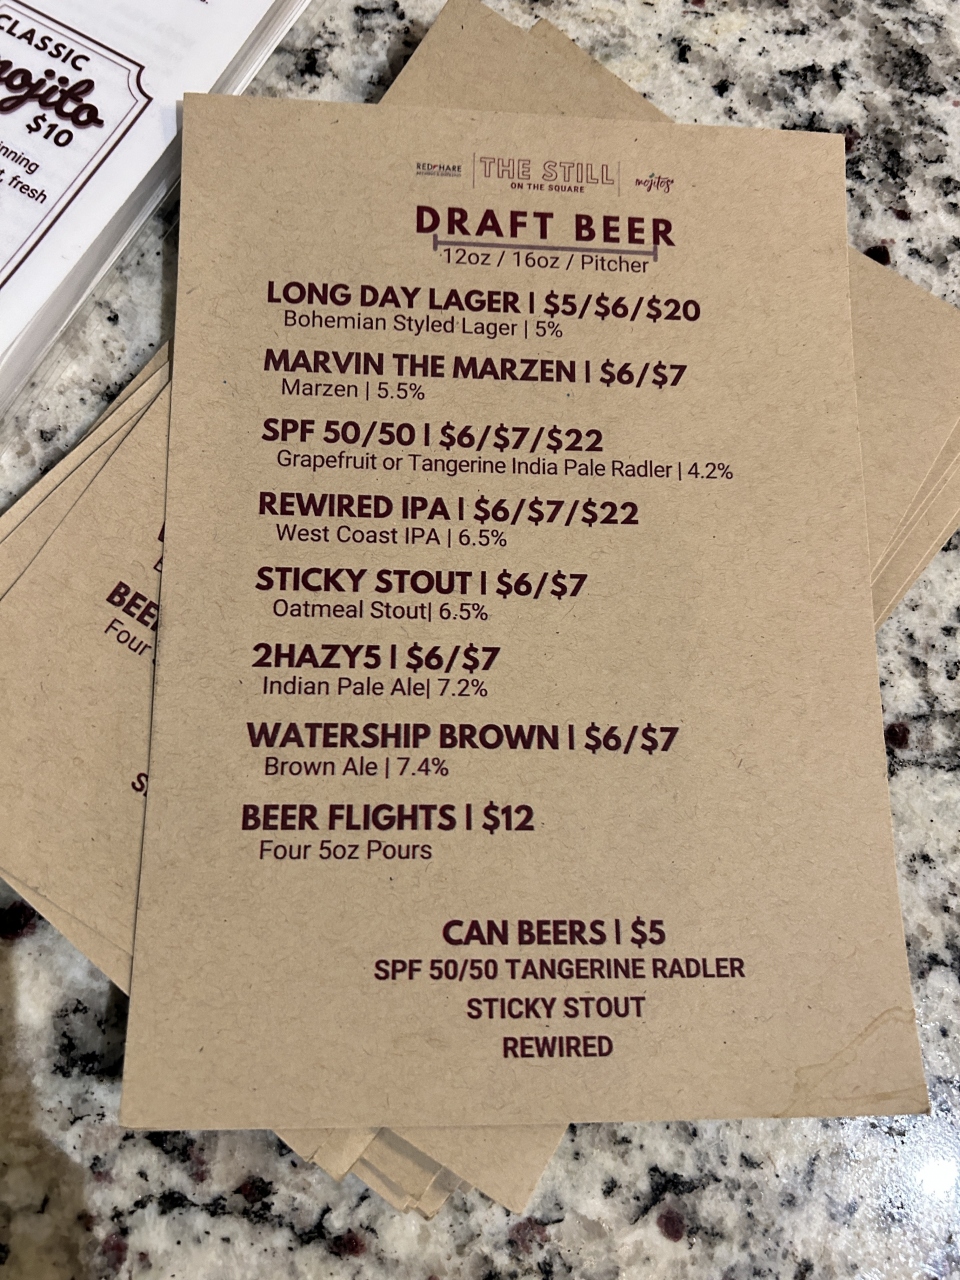 CLASSIC
mojito
$10
fresh
RED HARE
THE STILL
ON THE SQUARE
mojitos
DRAFT BEER
12oz / 16oz / Pitcher
LONG DAY LAGER | $5/$6/$20
Bohemian Styled Lager | 5%
MARVIN THE MARZEN | $6/$7
Marzen | 5.5%
SPF 50/50 | $6/$7/$22
Grapefruit or Tangerine India Pale Radler | 4.2%
REWIRED IPA | $6/$7/$22
West Coast IPA | 6.5%
STICKY STOUT | $6/$7
Oatmeal Stout| 6.5%
2HAZY5 | $6/$7
Indian Pale Ale| 7.2%
WATERSHIP BROWN | $6/$7
Brown Ale | 7.4%
BEER FLIGHTS | $12
Four 5oz Pours
CAN BEERS | $5
SPF 50/50 TANGERINE RADLER
STICKY STOUT
REWIRED
BEE
Four